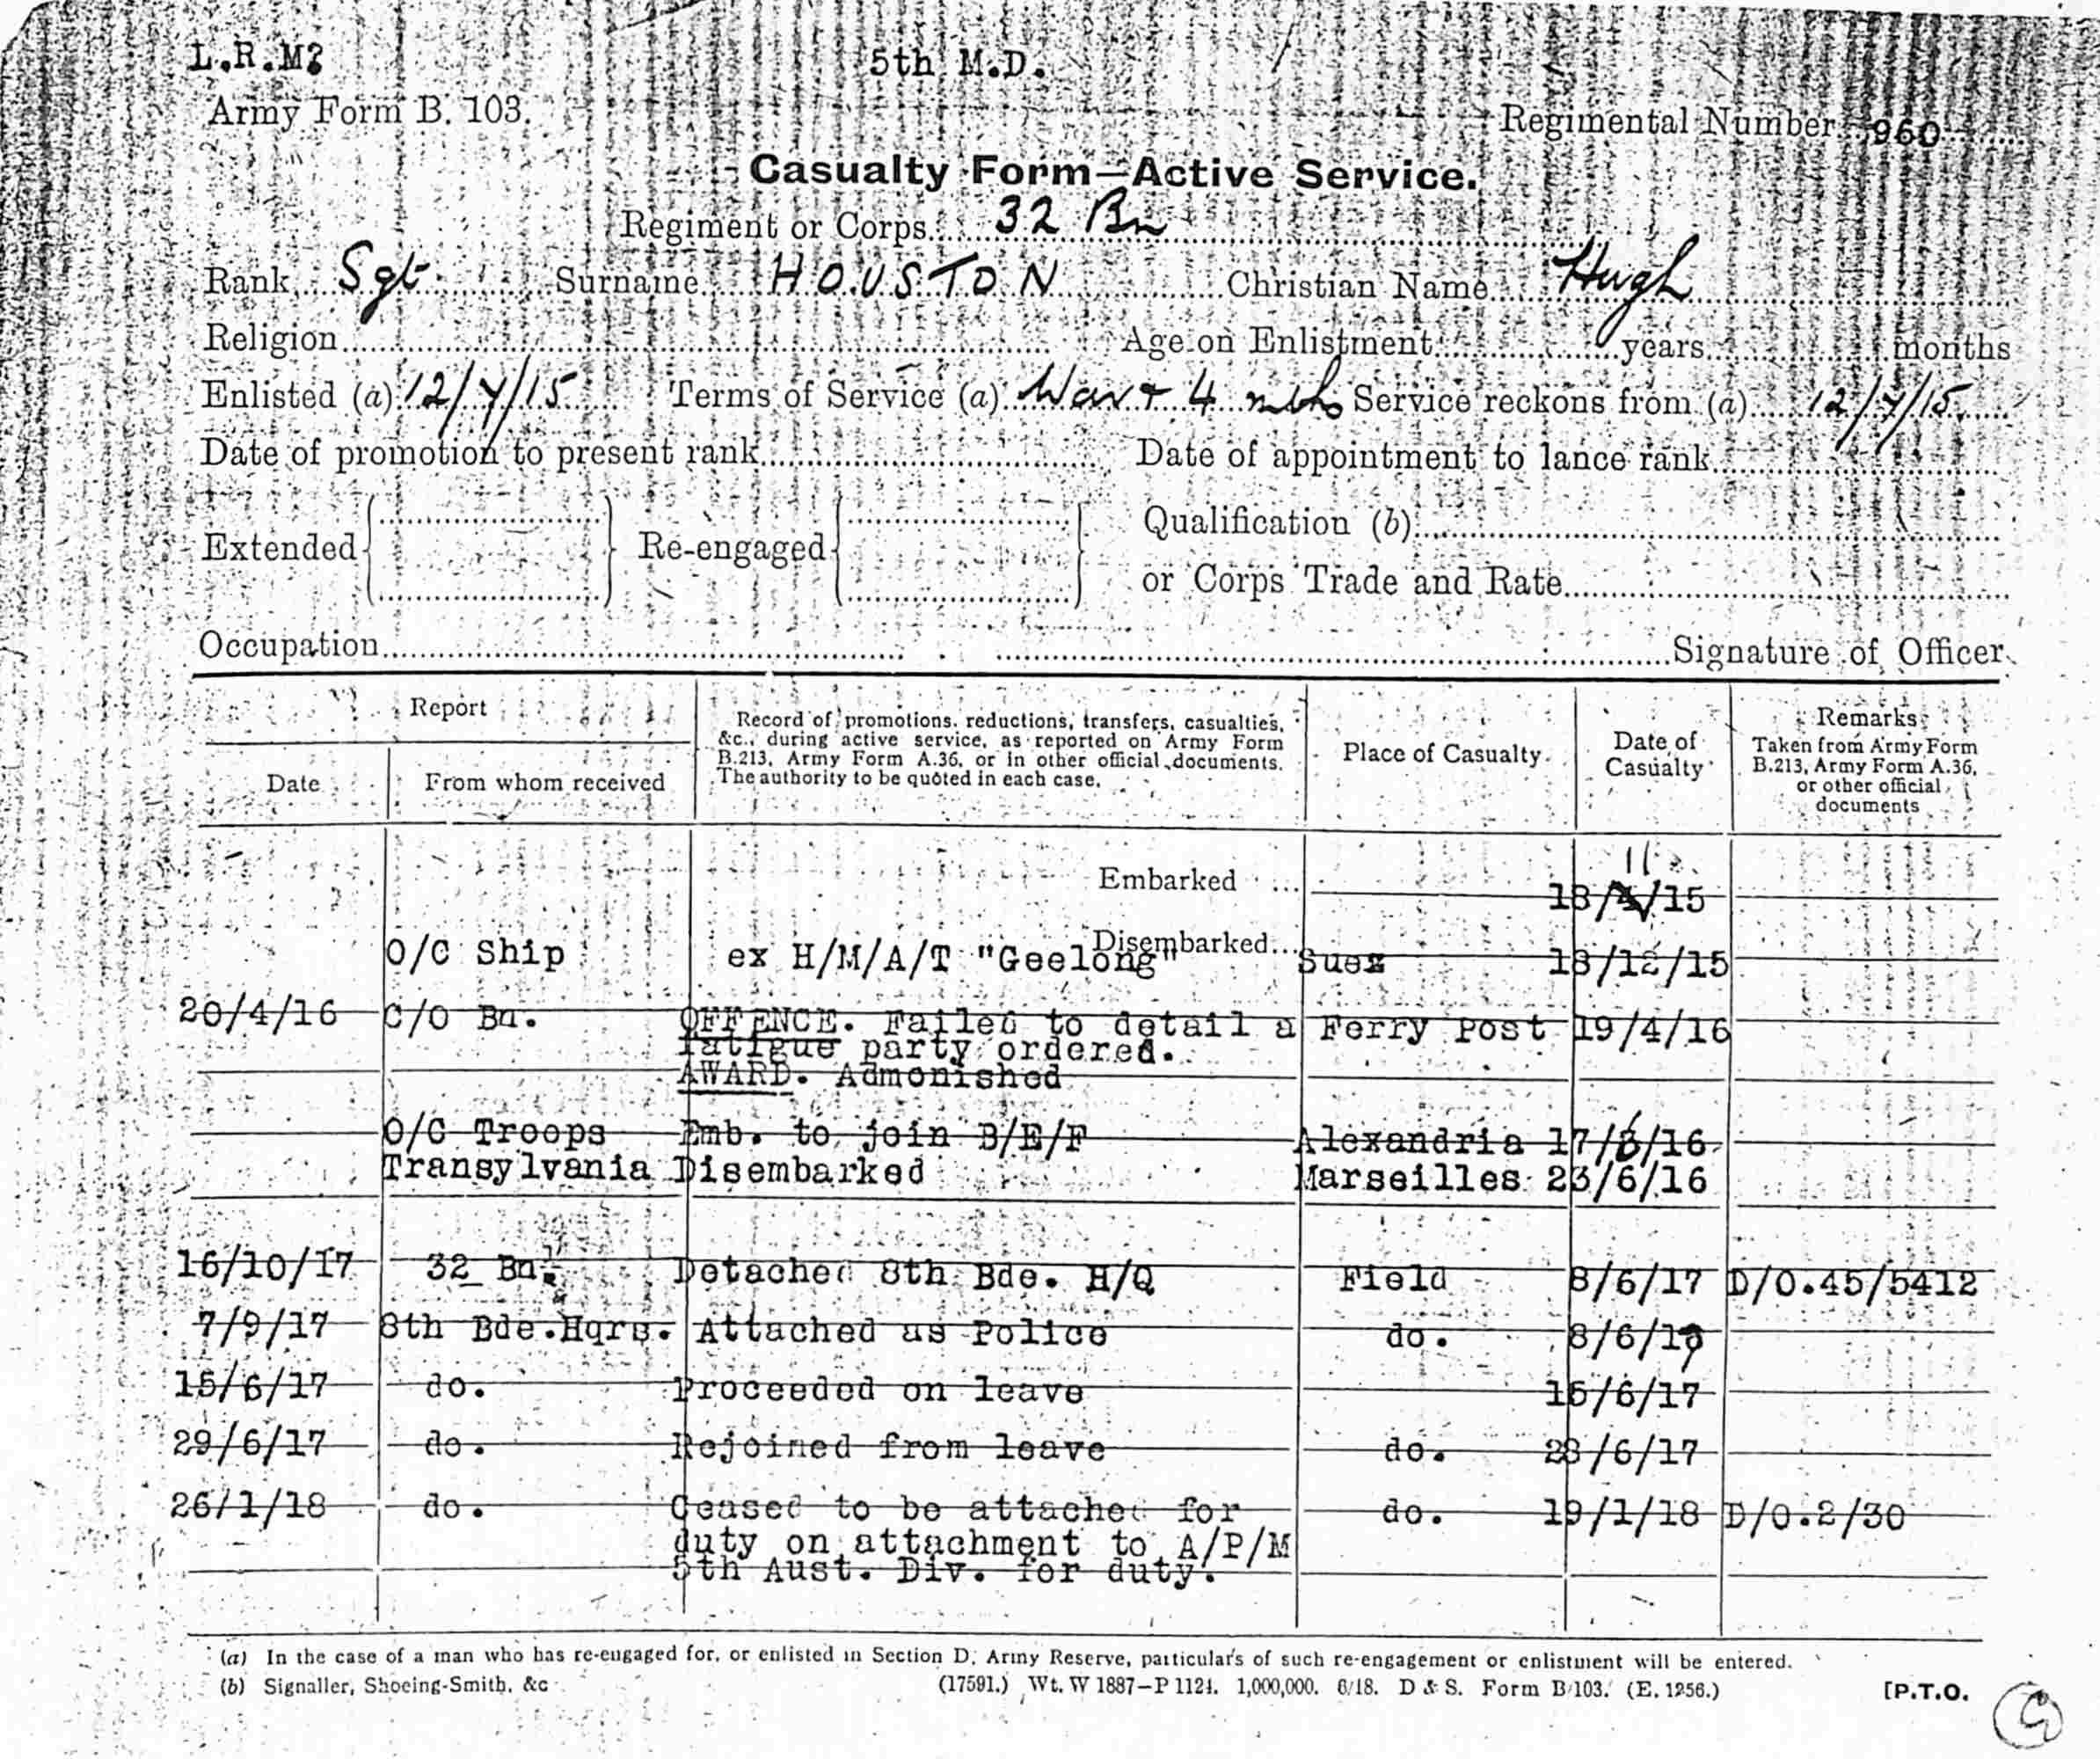 L.R.M?
5th M.D.
Army Form B. 103.
Regimental Number 960
Casualty Form—Active Service.
Regiment or Corps 32 Bn
Rank Sgt Surname HOUSTON Christian Name Hugh
Religion Age on Enlistment years months
Enlisted (a) 12/7/15 Terms of Service (a) War + 4 mths Service reckons from (a) 12/7/15
Date of promotion to present rank Date of appointment to lance rank
Extended Re-engaged Qualification (b)
or Corps Trade and Rate
Occupation Signature of Officer
Report
Date
From whom received
Record of promotions, reductions, transfers, casualties,
&c., during active service, as reported on Army Form
B.213, Army Form A.36, or in other official documents.
The authority to be quoted in each case.
Place of Casualty
Date of
Casualty
Remarks
Taken from Army Form
B.213, Army Form A.36,
or other official
documents
Embarked ... 18/11/15
O/C Ship ex H/M/A/T "Geelong" Disembarked... Suez 18/12/15
20/4/16 C/O Bn. OFFENCE. Failed to detail a Ferry Post 19/4/16
fatigue party ordered.
AWARD. Admonished
O/C Troops Emb. to join B/E/F Alexandria 17/6/16
Transylvania Disembarked Marseilles 23/6/16
16/10/17 32 Bn. Detached 8th Bde. H/Q Field 8/6/17 D/O.45/5412
7/9/17 8th Bde.Hqrs. Attached as Police do. 8/6/17
15/6/17 do. Proceeded on leave 15/6/17
29/6/17 do. Rejoined from leave do. 28/6/17
26/1/18 do. Ceased to be attached for do. 19/1/18 D/O.2/30
duty on attachment to A/P/M
5th Aust. Div. for duty.
(a) In the case of a man who has re-engaged for, or enlisted in Section D, Army Reserve, particulars of such re-engagement or enlistment will be entered.
(b) Signaller, Shoeing-Smith, &c
(17591.) Wt. W 1887—P 1124. 1,000,000. 6/18. D & S. Form B/103. (E. 1256.)
[P.T.O.